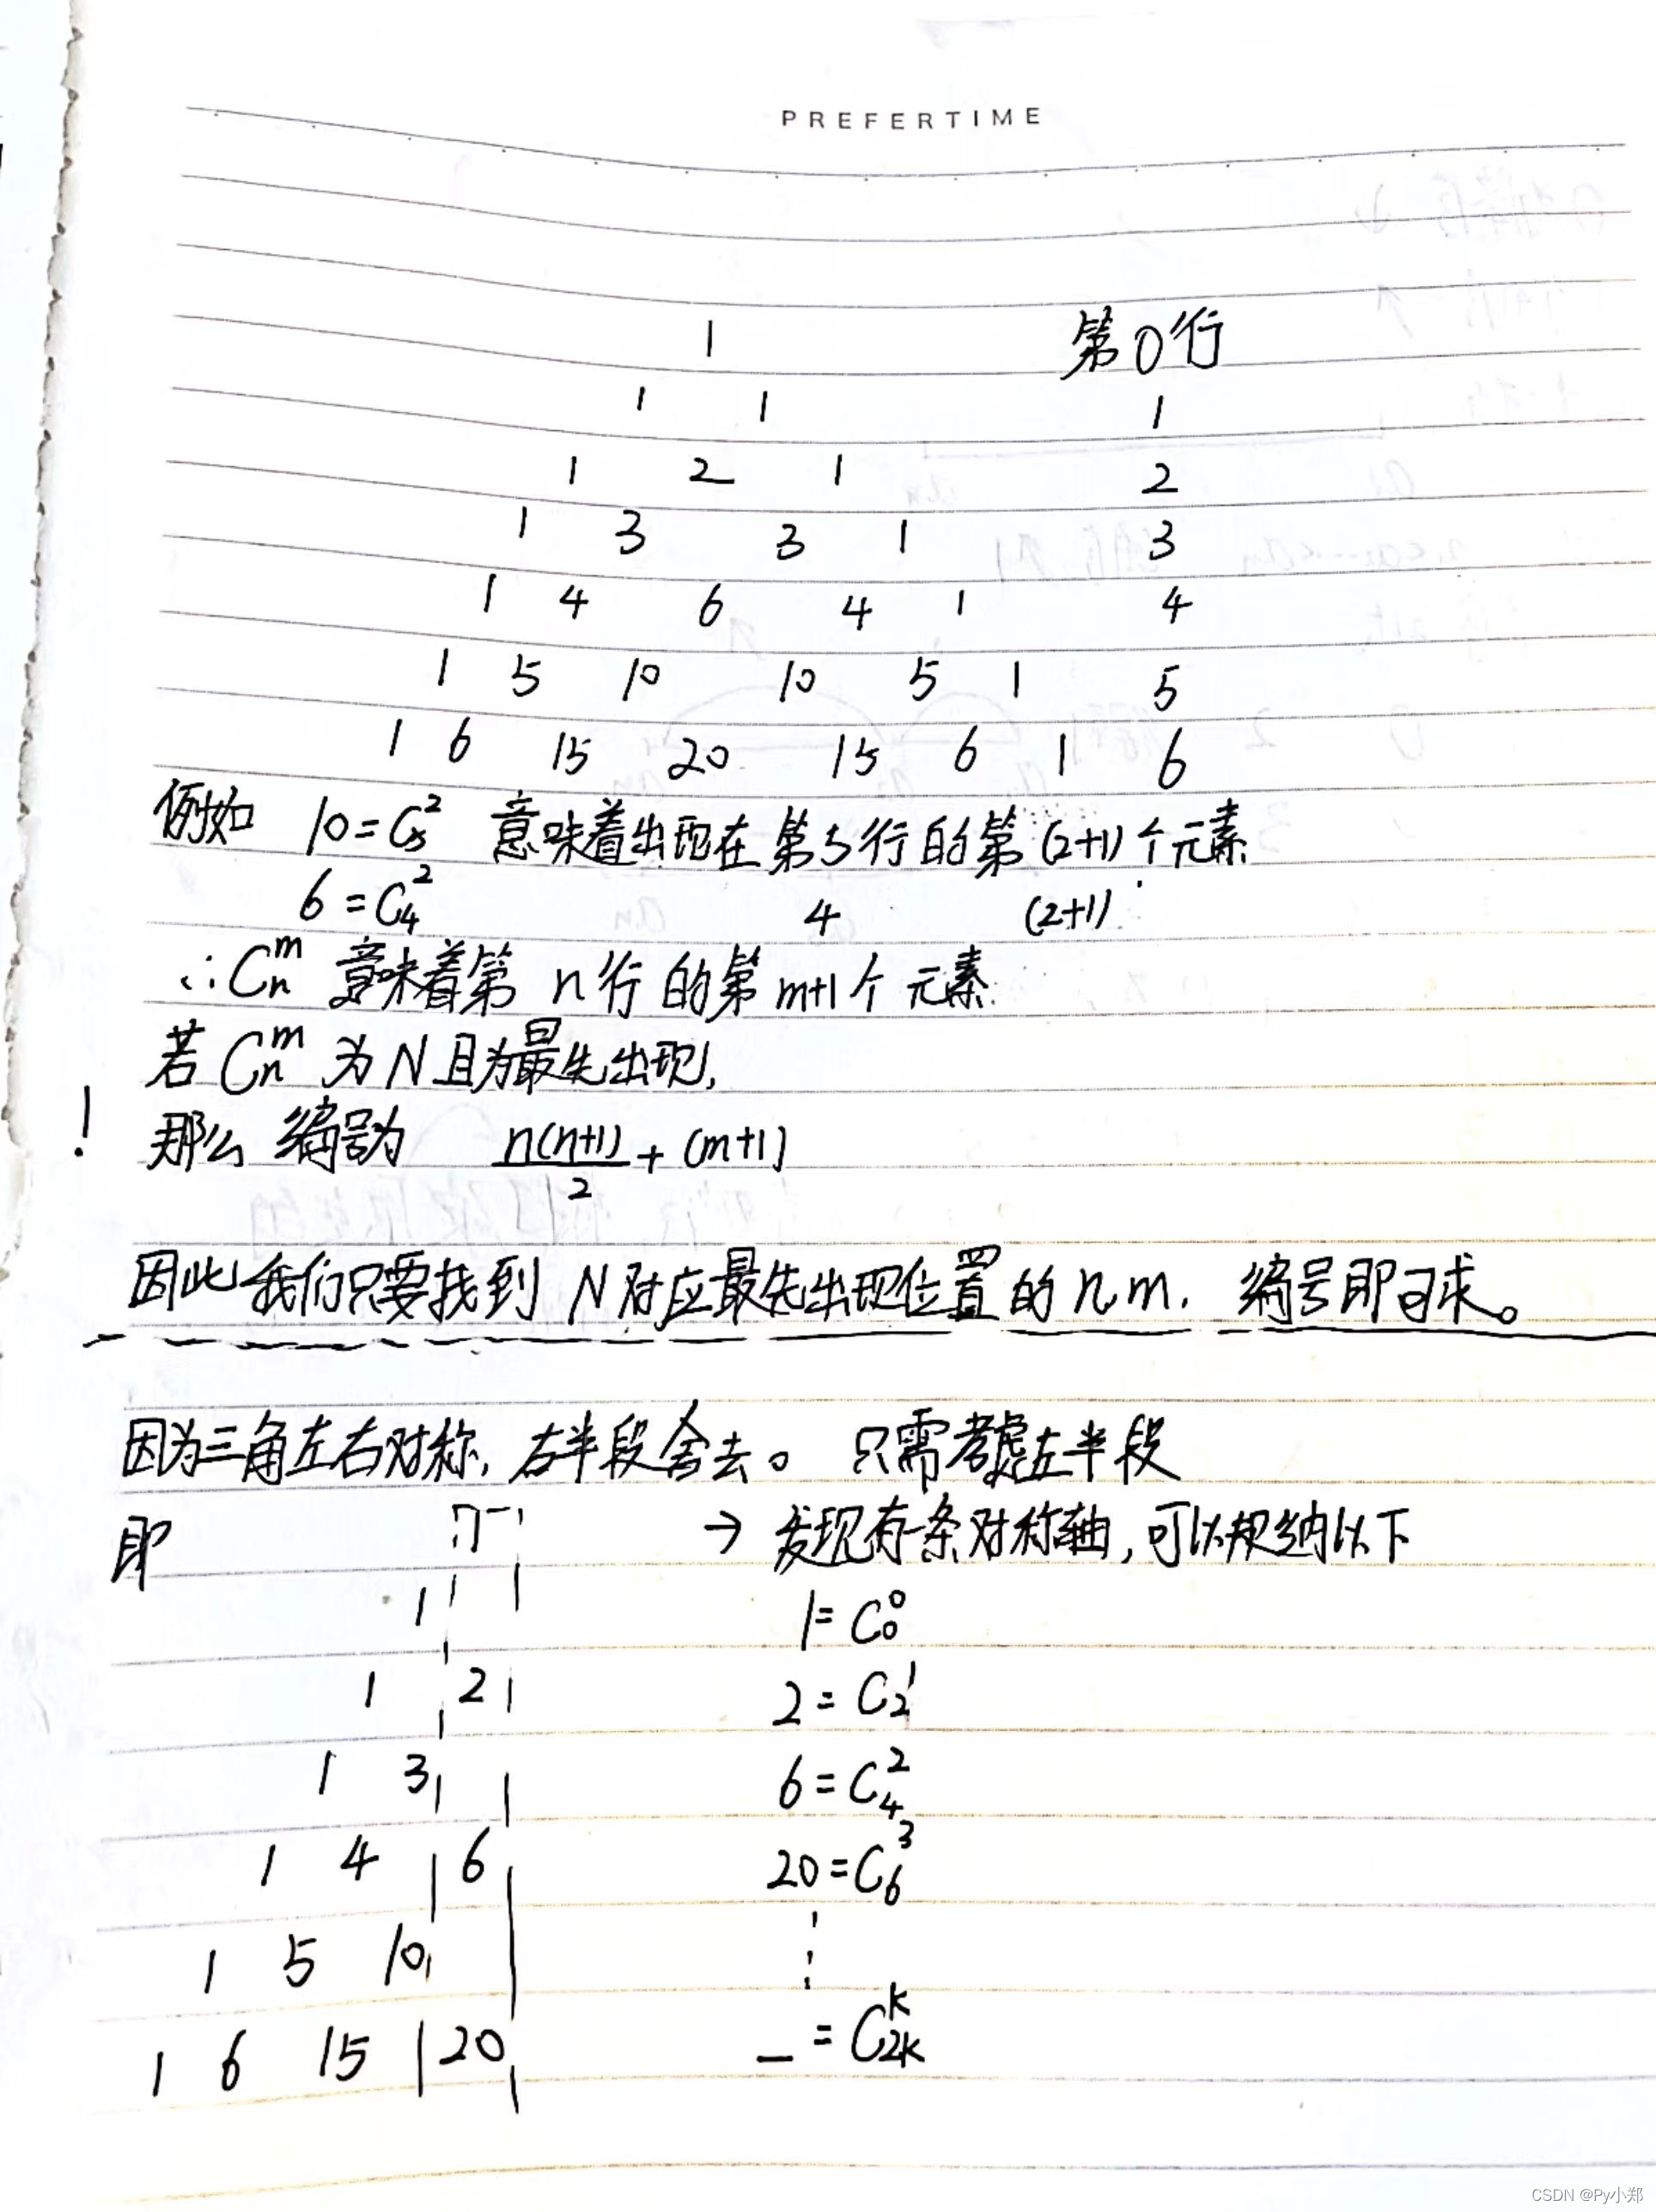 PREFERTIME
1 第0行
1 1 1
1 2 1 2
1 3 3 1 3
1 4 6 4 1 4
1 5 10 10 5 1 5
1 6 15 20 15 6 1 6
例如 10=C₅² 意味着出现在第5行的第(2+1)个元素
6=C₄² 4 (2+1)
∴Cₙᵐ 意味着第n行的第m+1个元素
若Cₙᵐ为N且为最先出现,
! 那么编号为 n(n+1)/2+(m+1)
因此我们只要找到N对应最先出现位置的n,m. 编号即可求。
因为三角左右对称,右半段舍去。只需考虑左半段
即 → 发现有一条对称轴,可以规纳以下
1 1=C₀⁰
1 2 2=C₂¹
1 3 6=C₄²
1 4 6 20=C₆³
1 5 10 ⋮
1 6 15 20 _=C₂ₖᵏ
CSDN @Py小郑